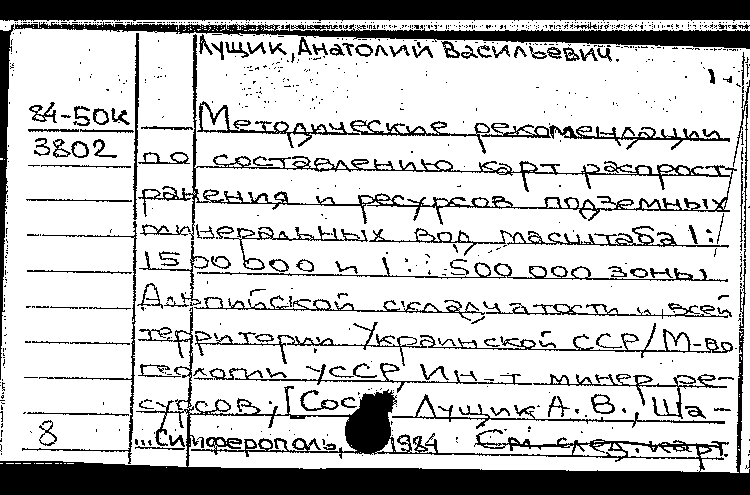 Лущик, Анатолий Васильевич.
84-50к
Методические рекомендации
3802
по составлению карт распрост-
ранения и ресурсов подземных
минеральных вод масштаба 1:
1500 000 и 1:: 500 000 зоны
Альпийской складчатости и всей
территории Украинской ССР/М-во
геологии УССР, Ин-т минер. ре-
сурсов; [Сост. Лущик А. В., Ша-
8
...Симферополь, 1984 См. след. карт.